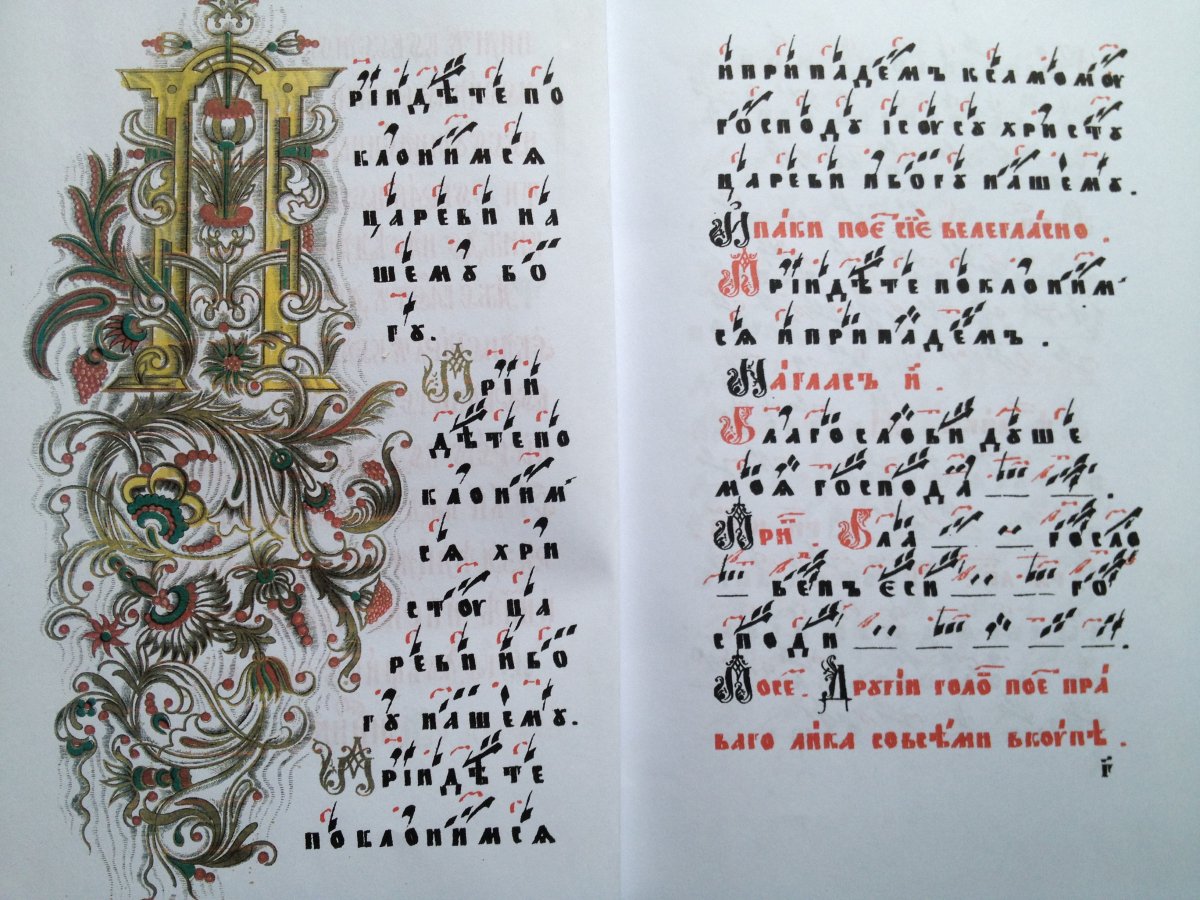 РІИДѢТЕ ПО
КЛОНИМСѦ
ЦАРЕВИ НА
ШЕМꙊ БО
ГꙊ.
ПРІИ
ДѢТЕ ПО
КЛОНИМ
СѦ ХРИ
СТОУ ЦА
РЕВИ И БО
ГꙊ НАШЕМꙊ.
ПРІИДѢТЕ
ПОКЛОНИМСѦ
И ПРИПАДЕМЪ К САМОМОУ
ГОСПОДꙊ ІСОУСꙊ ХРИСТꙊ
ЦАРЕВИ И БОГꙊ НАШЕМꙊ.
И҆па́ки пое҇ сїѐ велегла́сно.
ПРІИДѢТЕ ПОКЛОНИМ
СѦ И ПРИПАДЕМЪ.
На́гласъ и҃.
БЛАГОСЛОВИ ДꙊШЕ
МОѦ ГОСПОДА
При҇. БЛА ГОСЛО
ВЕНЪ ЄСИ ГО
СПОДИ
Посе҇. Дрꙋгі́и голо҇ пое҇ пра́
ваго ли́ка совсѣ́ми вкоупѣ̀.
г҃